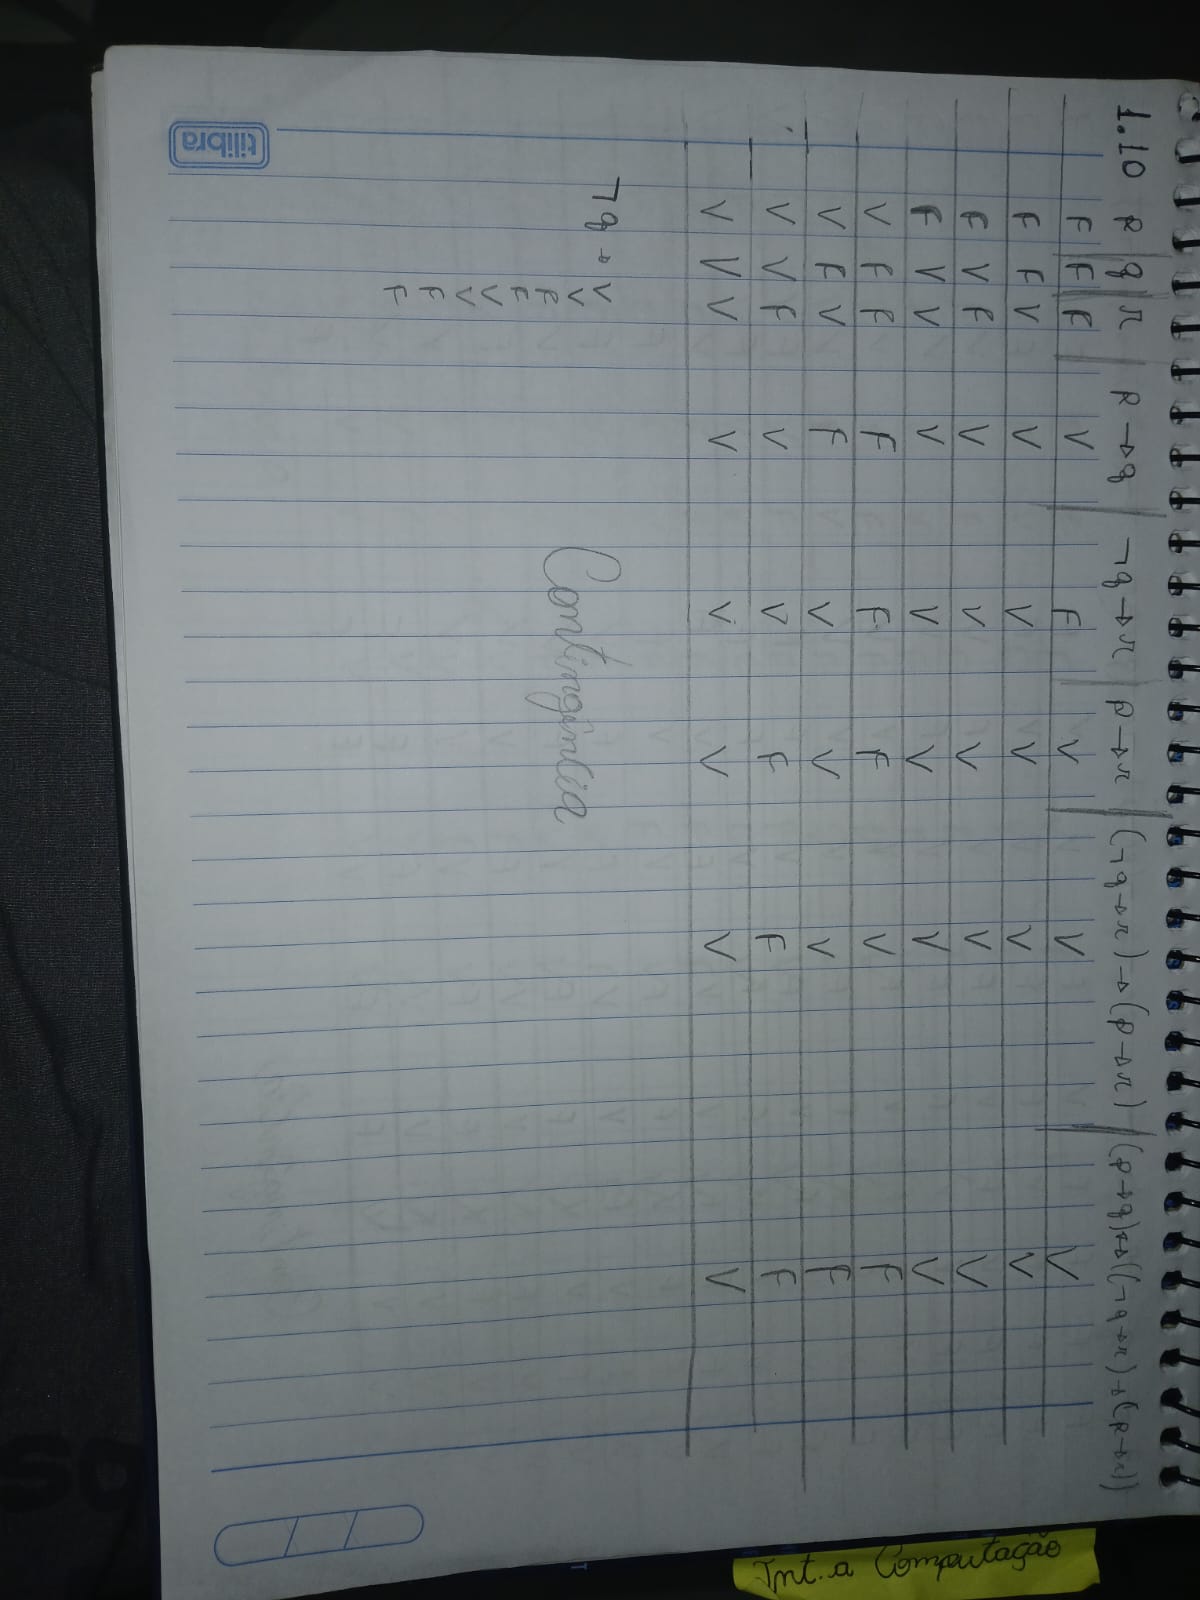 1.10 p q r p → q ¬q → r p → r (¬q → r) → (p → r) (p → q) ↔ ((¬q → r) → (p → r))
F F F V F V V V
F F V V V V V V
F V F V V V V V
F V V V V V V V
V F F F F F V F
V F V F V V V F
V V F V V F F F
V V V V V V V V
¬q → V
V
F
F
V
V
F
F
Contingência
Int. a Computação
tilibra